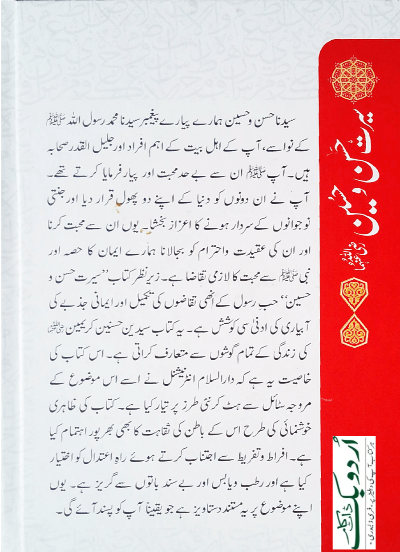 سیدنا حسن و حسین ہمارے پیارے پیغمبر سیدنا محمد رسول اللہ ﷺ
کے نواسے، آپ کے اہل بیت کے اہم افراد اور جلیل القدر صحابہ
ہیں۔ آپ ﷺ ان سے بے حد محبت اور پیار فرمایا کرتے تھے۔
آپ نے ان دونوں کو دنیا کے اپنے دو پھول قرار دیا اور جنتی
نوجوانوں کے سردار ہونے کا اعزاز بخشا۔ یوں ان سے محبت کرنا
اور ان کی عقیدت و احترام کو بجالانا ہمارے ایمان کا حصہ اور
نبی ﷺ سے محبت کا لازمی تقاضا ہے۔ زیر نظر کتاب ”سیرت حسن و
حسین“ حب رسول کے انھی تقاضوں کی تکمیل اور ایمانی جذبے کی
آبیاری کی ادنیٰ سی کوشش ہے۔ یہ کتاب سیدین حسنین کریمین
کی زندگی کے تمام گوشوں سے متعارف کراتی ہے۔ اس کتاب کی
خاصیت یہ ہے کہ دارالسلام انٹرنیشنل نے اسے اس موضوع کے
مروجہ سٹائل سے ہٹ کر نئی طرز پر تیار کیا ہے۔ کتاب کی ظاہری
خوشنمائی کی طرح اس کے باطن کی ثقاہت کا بھی بھرپور اہتمام کیا
ہے۔ افراط و تفریط سے اجتناب کرتے ہوئے راہِ اعتدال کو اختیار
کیا ہے اور رطب و یابس اور بے سند باتوں سے گریز ہے۔ یوں
اپنے موضوع پر یہ مستند دستاویز ہے جو یقیناً آپ کو پسند آئے گی۔
سیرت حسن و حسین
رضی اللہ عنہما
اردو بک
ڈاٹ کام